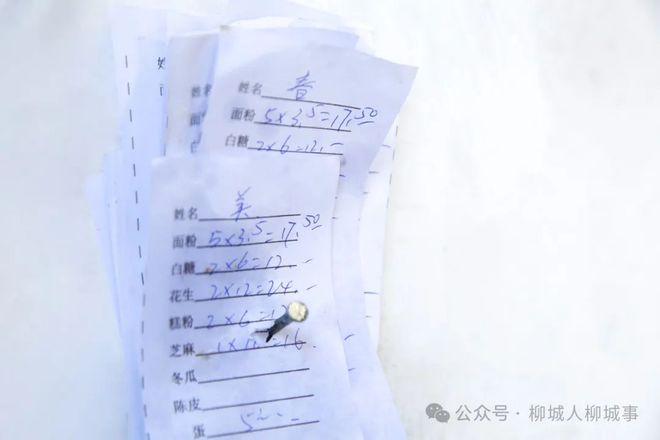 姓名 春
面粉 5×3.5=17.50
白糖 2×6=12.-
姓名 美
面粉 5×3.5=17.50
白糖 2×6=12.-
花生 2×12=24.-
糕粉 2×6=12
芝麻 =16.
冬瓜
陈皮
蛋
公众号·柳城人柳城事